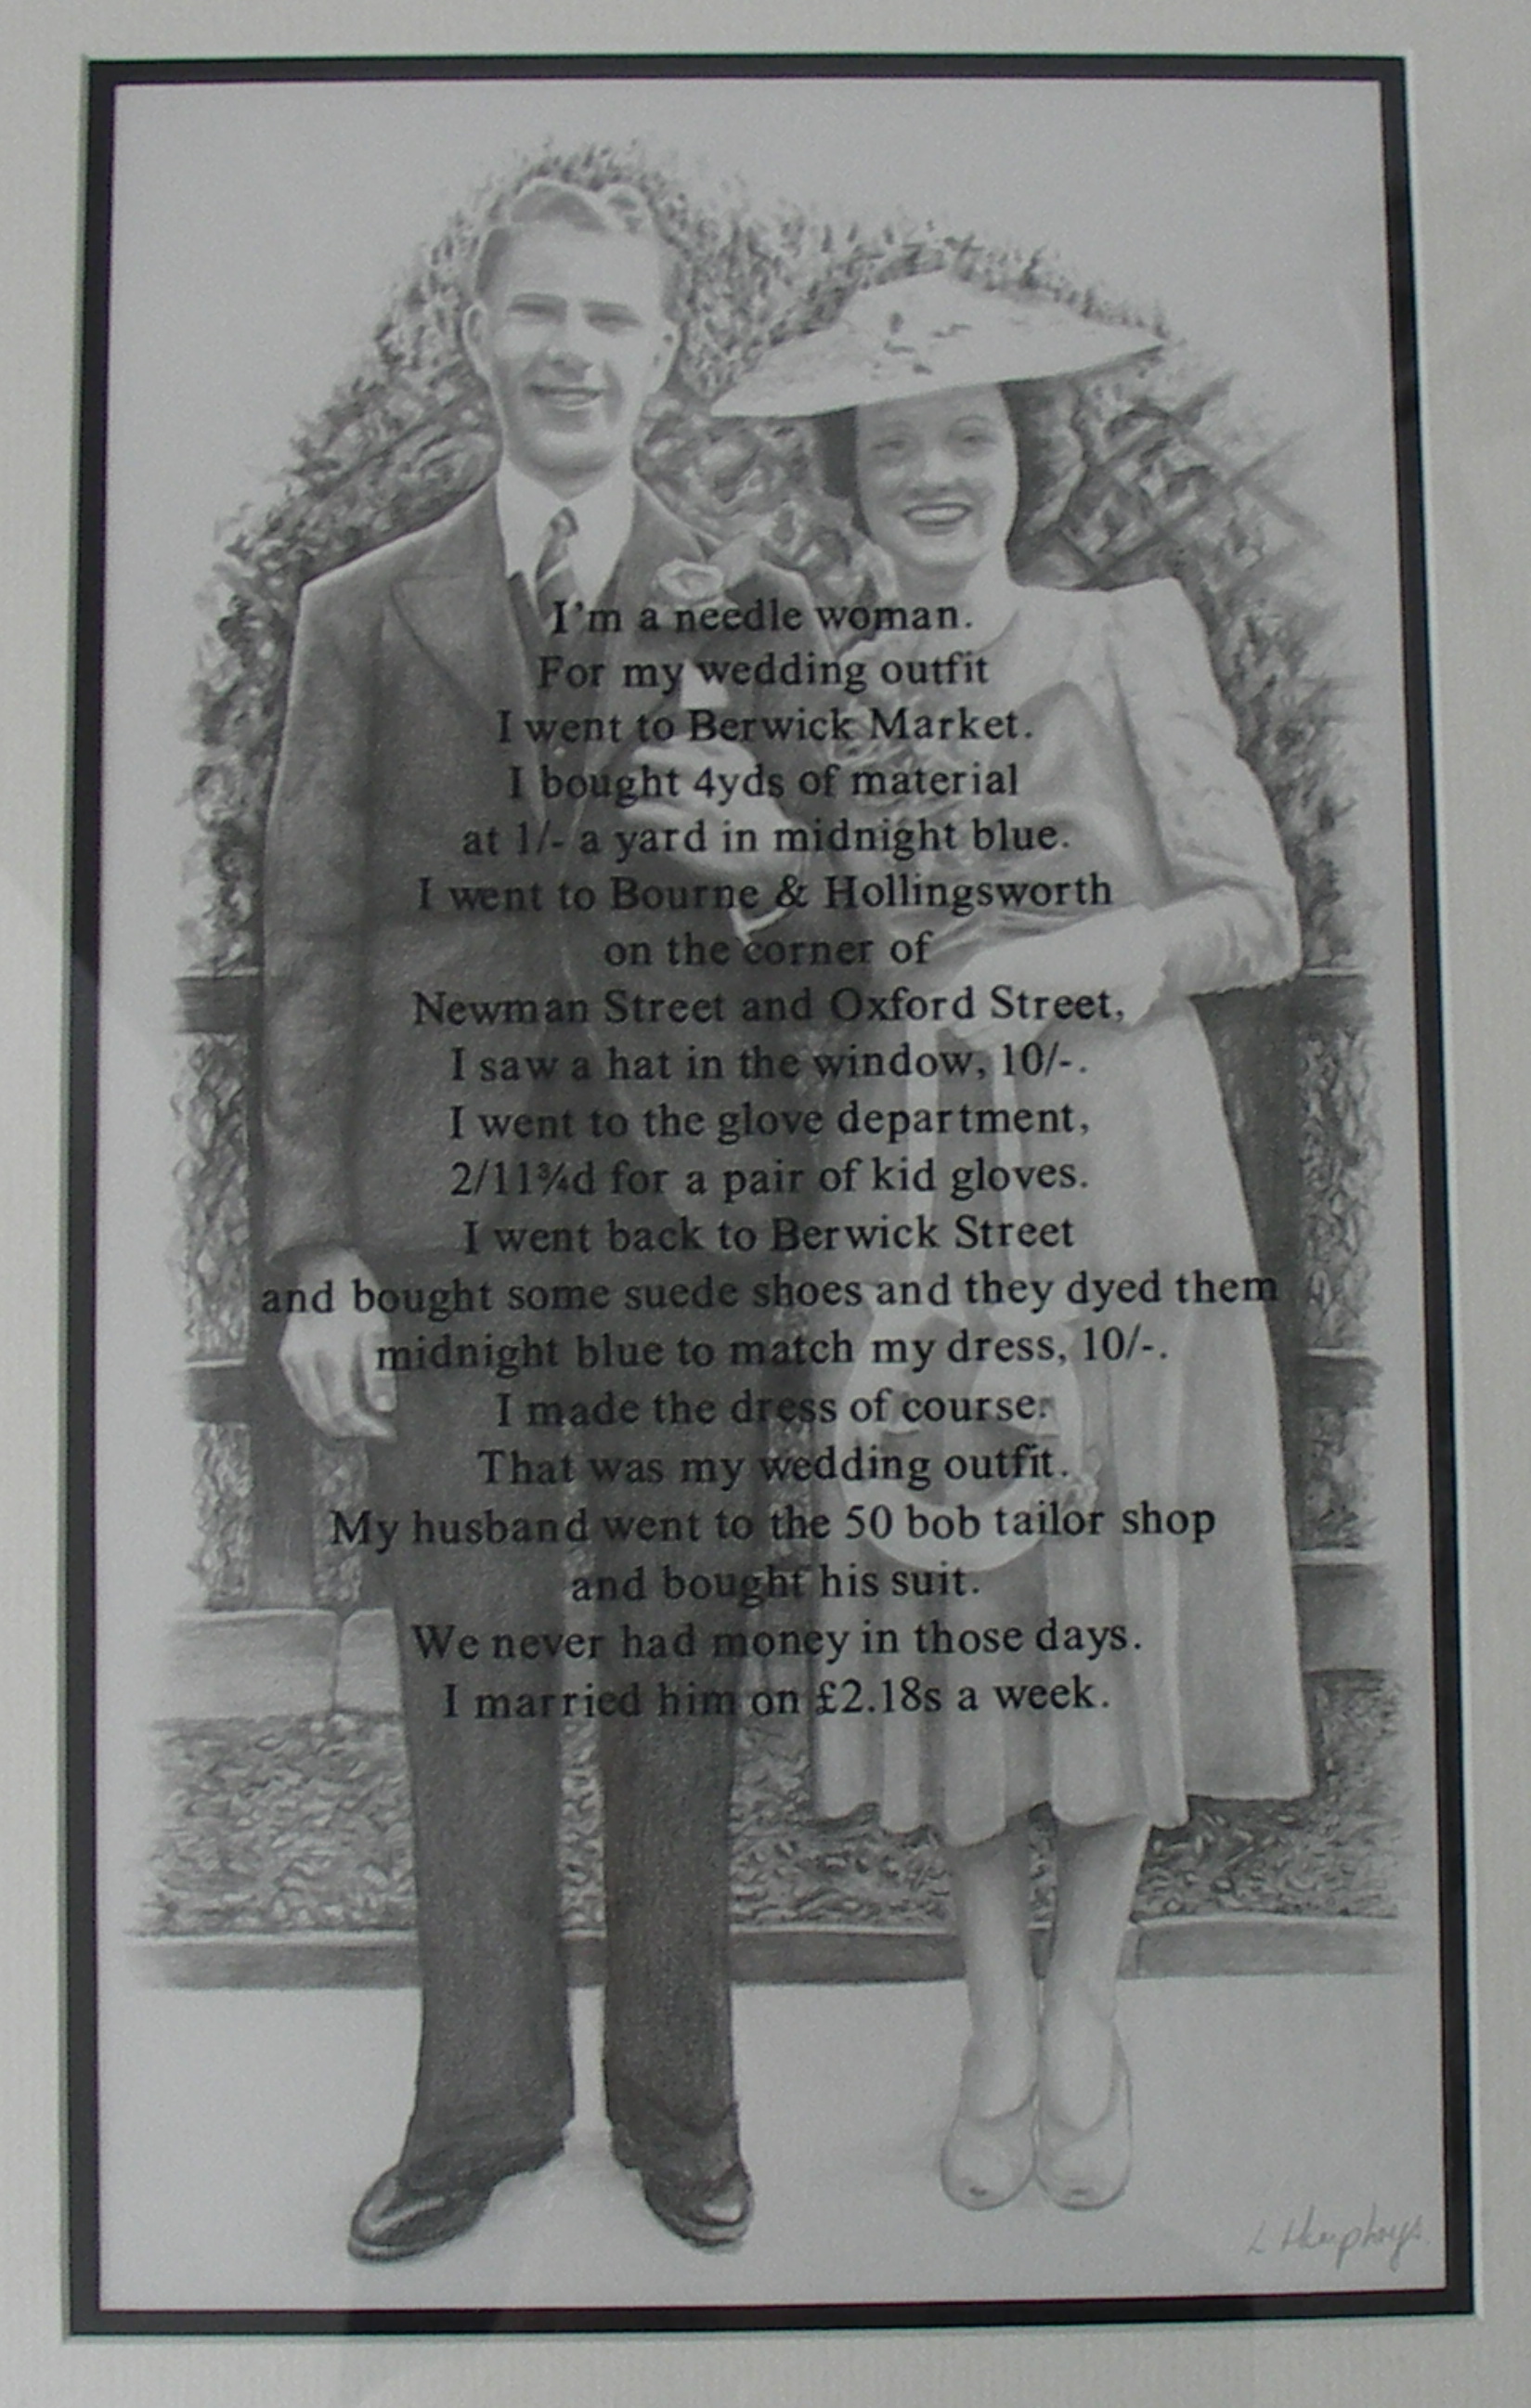 I'm a needle woman.
For my wedding outfit
I went to Berwick Market.
I bought 4yds of material
at 1/- a yard in midnight blue.
I went to Bourne & Hollingsworth
on the corner of
Newman Street and Oxford Street,
I saw a hat in the window, 10/-.
I went to the glove department,
2/11¾d for a pair of kid gloves.
I went back to Berwick Street
and bought some suede shoes and they dyed them
midnight blue to match my dress, 10/-.
I made the dress of course.
That was my wedding outfit.
My husband went to the 50 bob tailor shop
and bought his suit.
We never had money in those days.
I married him on £2.18s a week.
L Humphreys